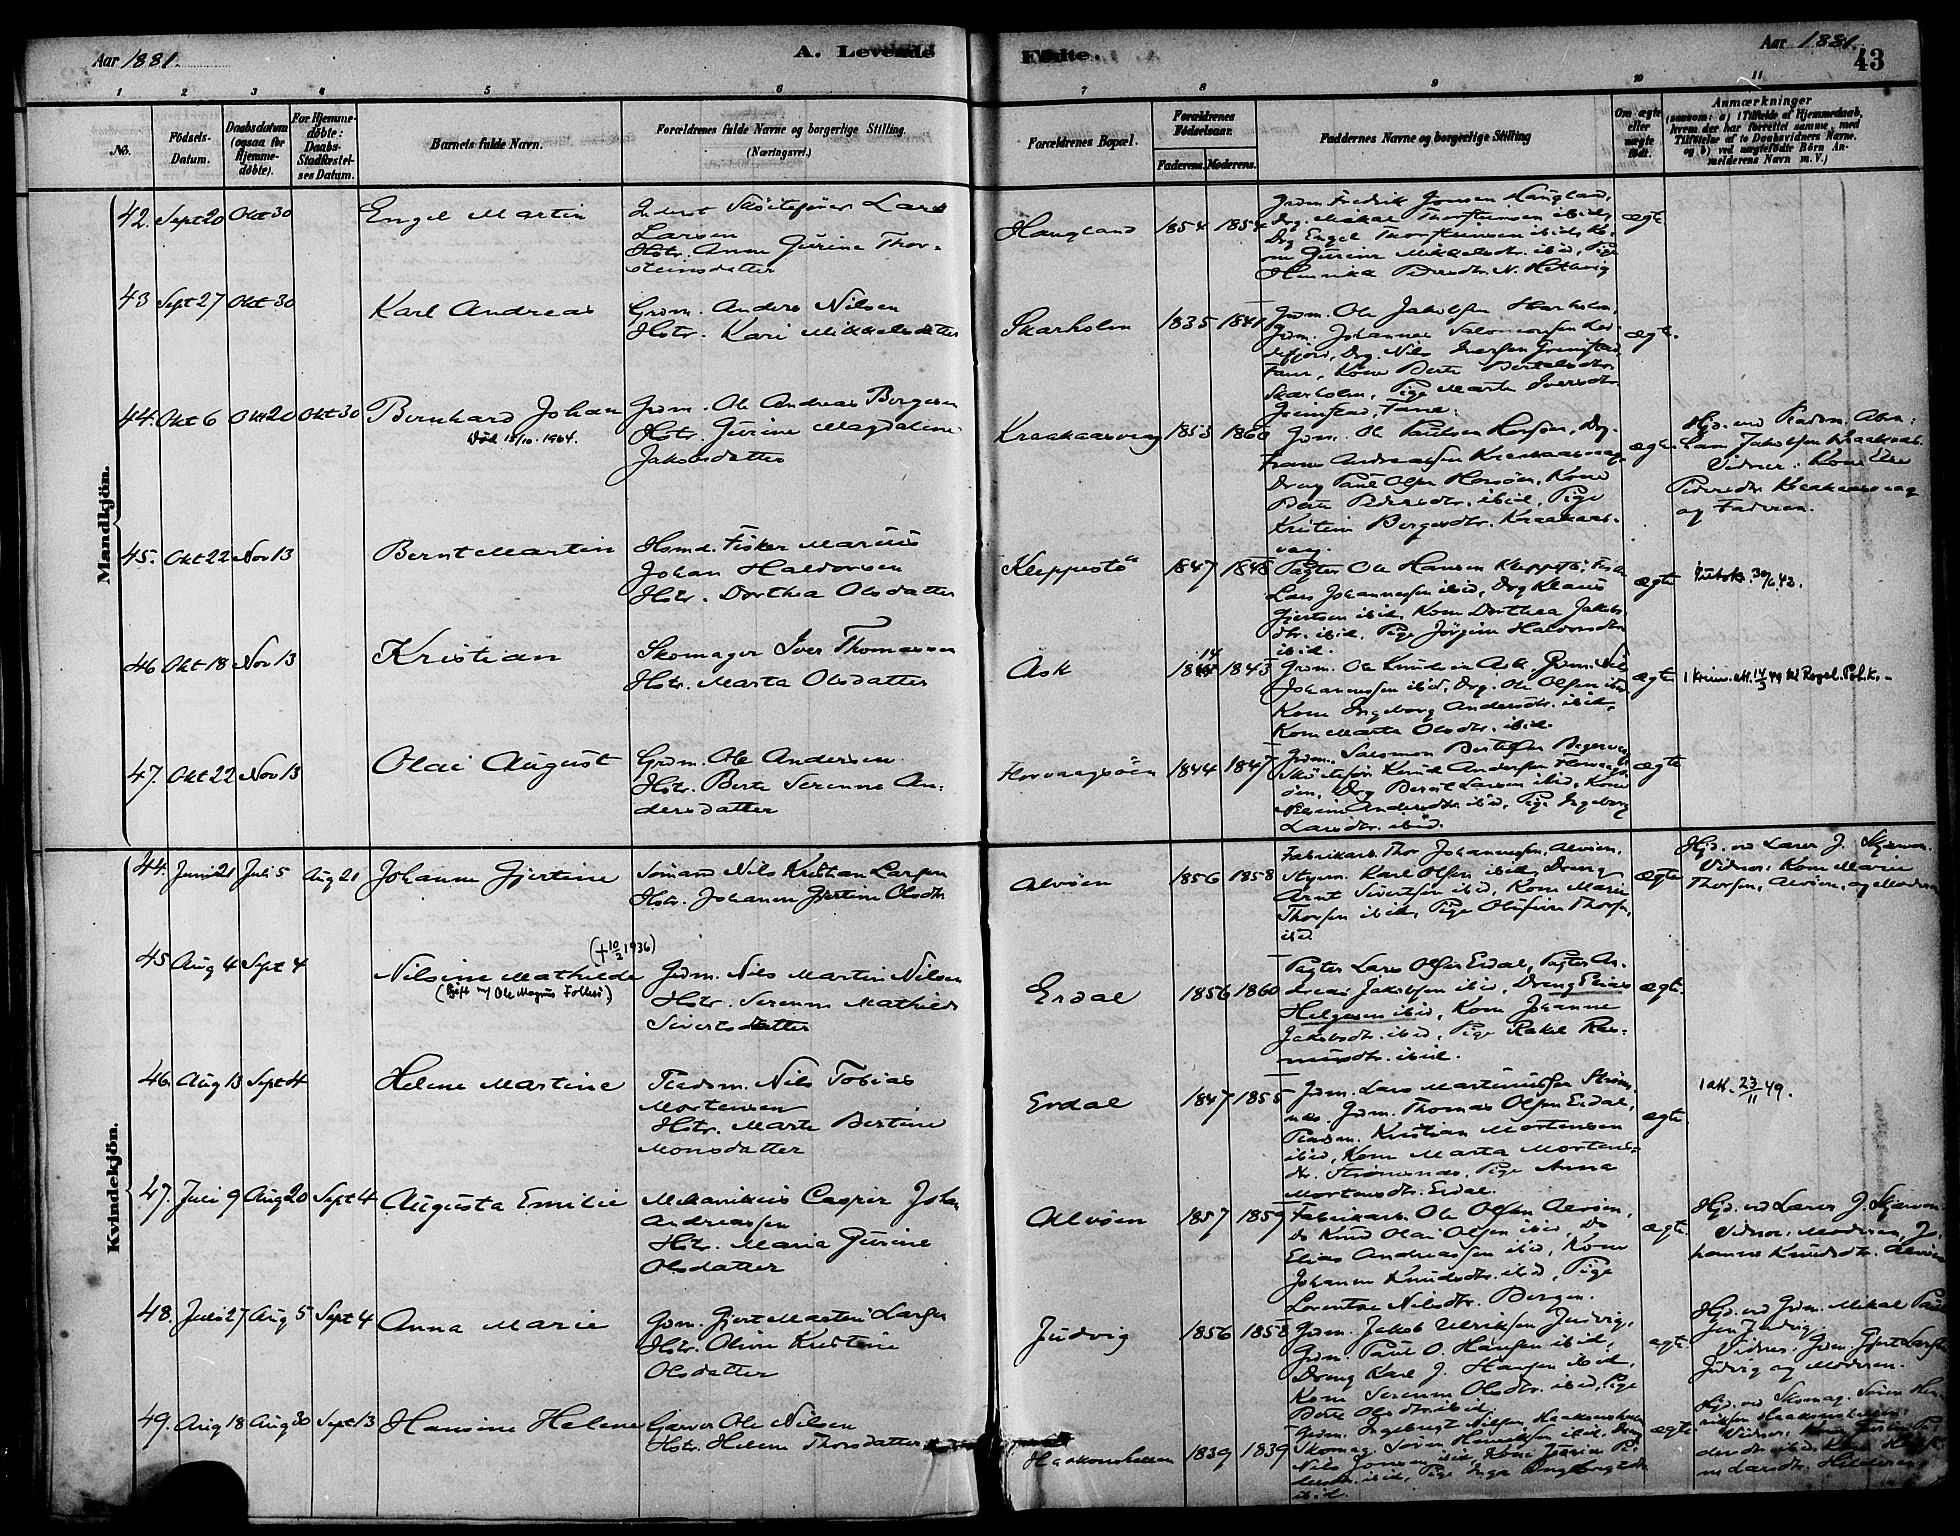 Aar 1881.
A. Levende
Fødte.
Aar 1881.
43
1 2 3 4 5 6 7 8 9 10 11
No.
Födsels-
Datum.
Daabsdatum
(ogsaa for
Hjemme-
döbte).
For Hjemme-
døbte:
Daabs-
Stadfæstel-
ses Datum.
Barnets fulde Navn.
Forældrenes fulde Navne og borgerlige Stilling.
(Næringsvei.)
Forældrenes Bopæl.
Forældrenes
Fødselsaar.
Faderens. Moderens.
Faddernes Navne og borgerlige Stilling
Om ægte
eller
uægte
født.
Anmærkninger
(saasom: a) i Tilfælde af Hjemmedaab,
hvem der har forrettet samme, med
Tilföielse af to Daabsvidners Navne.
og b) ved uægtefödte Börn An-
melderens Navn m. V.)
Mandkjön.
42. Sept 20 Okt 30
Engel Martin
Inderst Skøitefører Lars
Larsen
Hstr. Anne Gurine Thor-
steinsdatter
Haugland
1854 1854
Grdm. Fredrik Jonsen Haugland,
Drg. Mikal Thorsteinsen ibid,
Drg Engel Thorsteinsen ibid, Ko-
ne Gurine Mikkelsdtr ibid, Pige
Henrikke Pedersdtr. N.
ægte
43 Sept 27 Okt 30
Karl Andreas
Grdm. Anders Nilsen
Hstr. Kari Mikkelsdatter
Skarholm
1835 1841
Grdm. Ole Jakobsen Skarholm,
Grdm. Johannes Salomonsen
Drg. Nils Iversen Grimstad,
Fane, Kone Berte Bertelsdtr
Skarholm, Pige Marta Iversdtr
Grimstad, Fane.
ægte.
44. Okt 6 Okt 20 Okt 30
Bernhard Johan
Død 15/10. 1964.
Grdm. Ole Andreas Børgesen
Hstr. Gurine Magdalene
Jakobsdatter
Kraakaasvaag
1853 1860
Grdm. Ole Paulsen Horsøen, Drg.
Frans Andreassen Kraakaasvaag
Dreng Paul Olsen Horsøen, Kone
Berte Pedersdtr. ibid, Pige
Kristine Børgesdtr. Kraakaas-
vaag.
ægte
Hjd. ved Pladsm. Abra-
ham Jakobsen Kraakaas.
Vidner: Kone Else
Pedersdtr. Kraakaasvaag
og Faderen.
45. Okt 22 Nov 13
Bernt Martin
Hsmd. Fisker Marius
Johan Haldorsen
Hstr. Dorthea Olsdatter
Kleppestö
1847 1848
Pagter Ole Hansen Kleppestö,
Lars Johannessen ibid, Drg Klaus
Gjertsen ibid, Kone Dorthea Jakobs-
dtr. ibid, Pige Jørgine Haldorsdtr
ibid.
ægte
46 Okt 18 Nov 13
Kristian
Skomager Iver Thomassen
Hstr. Marta Olsdatter
Ask
1843
Grdm. Ole Knudsen Ask, Grdm. Nils
Johannessen ibid, Drg. Ole Olsen ibid
Kone Ingeborg Andersdtr. ibid,
Kone Marta Olsdtr. ibid.
ægte
1 Krim. att. 14/3 49 til Rogal. Pol.k.-
47. Okt 22 Nov 13
Olai August
Grdm. Ole Andersen
Hstr. Berte Serenne An-
dersdatter
Florvaagsöen
1844 1847
Grdm. Salomon Bertelsen
Skøitefør. Knud Andersen Florvaags-
öen, Drg Bernt Larsen ibid, Kone
Andersdtr ibid, Pige Ingeborg
Larsdtr. ibid.
ægte
Kvindekjön.
44. Juni 21 Juli 5 Aug 21
Johanne Gjertine
Sömand Nils Kristian Larsen
Hstr. Johanne Gjertine Olsdtr
Alvöen
1856 1858
Fabrikarb. Thor Johannessen, Alvöen,
Styrm. Karl Olsen ibid, Dreng
Arnt Sivertsen ibid, Kone Marie
Thorsen ibid, Pige Olufine Thorsen,
ibid
ægte
Hjd. ved Lærer J. Skjærven.
Vidner: Kone Marie
Thorsen, Alvöen, og Moderen
45 Aug 4 Sept 4
(+ 10/2 1936)
Nilsine Mathilde
(Gift m/ Ole Magnus Follesö)
Grdm. Nils Martin Nilsen
Hstr. Serenne Mathilde
Sivertsdatter
Erdal
1856 1860
Pagter Lars Olsen Erdal, Pagter An-
dreas Jakobsen ibid, Dreng Elias
Helgesen ibid, Kone Johanne
Jakobsdtr. ibid, Pige Rakel Ras-
musdtr. ibid.
ægte.
46. Aug 13 Sept 4
Helene Martine
Pladsm. Nils Tobias
Mortensen
Hstr. Marte Bertine
Monsdatter
Erdal
1847 1855
Grdm. Lars Martinussen Strøm-
næs, Grdm. Thomas Olsen Erdal,
Pladsm. Kristian Mortensen
ibid, Kone Marta Mortens-
dtr. Strømsnæs, Pige Anna
Mortensdtr. Erdal.
ægte.
1 att. 23/11 49.
47. Juli 9 Aug 20 Sept 4
Augusta Emilie
Mekanikus Casper Johan
Andreassen
Hstr. Maria Gurine
Olsdatter
Alvöen
1857 1859
Fabrikarb. Ole Olsen Alvöen,
Do Knud Olai Olsen ibid, Do
Elias Andreassen ibid, Kone
Johanne Knudsdtr. ibid, Pige
Lorentze Nilsdtr. Bergen.
ægte
Hjd. ved Lærer J. Skjærven
Vidner: Moderen, Jo-
hanne Knudsdtr. Alvöen
48. Juli 27 Aug 5 Sept 4
Anna Marie
Grdm. Gjert Martin Larsen
Hstr. Oline Kristine
Olsdatter
Judvig
1856 1858
Grdm. Jakob Ulriksen Judvig,
Grdm. Paul O. Hansen ibid,
Dreng Karl J. Hansen ibid,
Kone Serenne Olsdtr. ibid, Pige
Berte Olsdtr. ibid.
ægte
Hjd. ved Grdm. Mikal Paul-
sen Judvig.
Vidner: Grdm. Gjert Larsen
Judvig og Moderen.
49. Aug 18 Aug 30 Sept 13
Hansine Helene
Garver Ole Nilsen
Hstr. Helene Thorsdatter
Haakonshellen
1839 1839
Grdm. Ingebrigt Nilsen Haakonshellen
Skomag. Søren Henriksen ibid, Dreng
Nils Jonsen ibid, Kone Pe-
dersdtr. ibid, Pige Inga Ingebrigtsdtr
ibid.
ægte
Hjd. ved Skomag. Søren Hen-
riksen Haakonshellen.